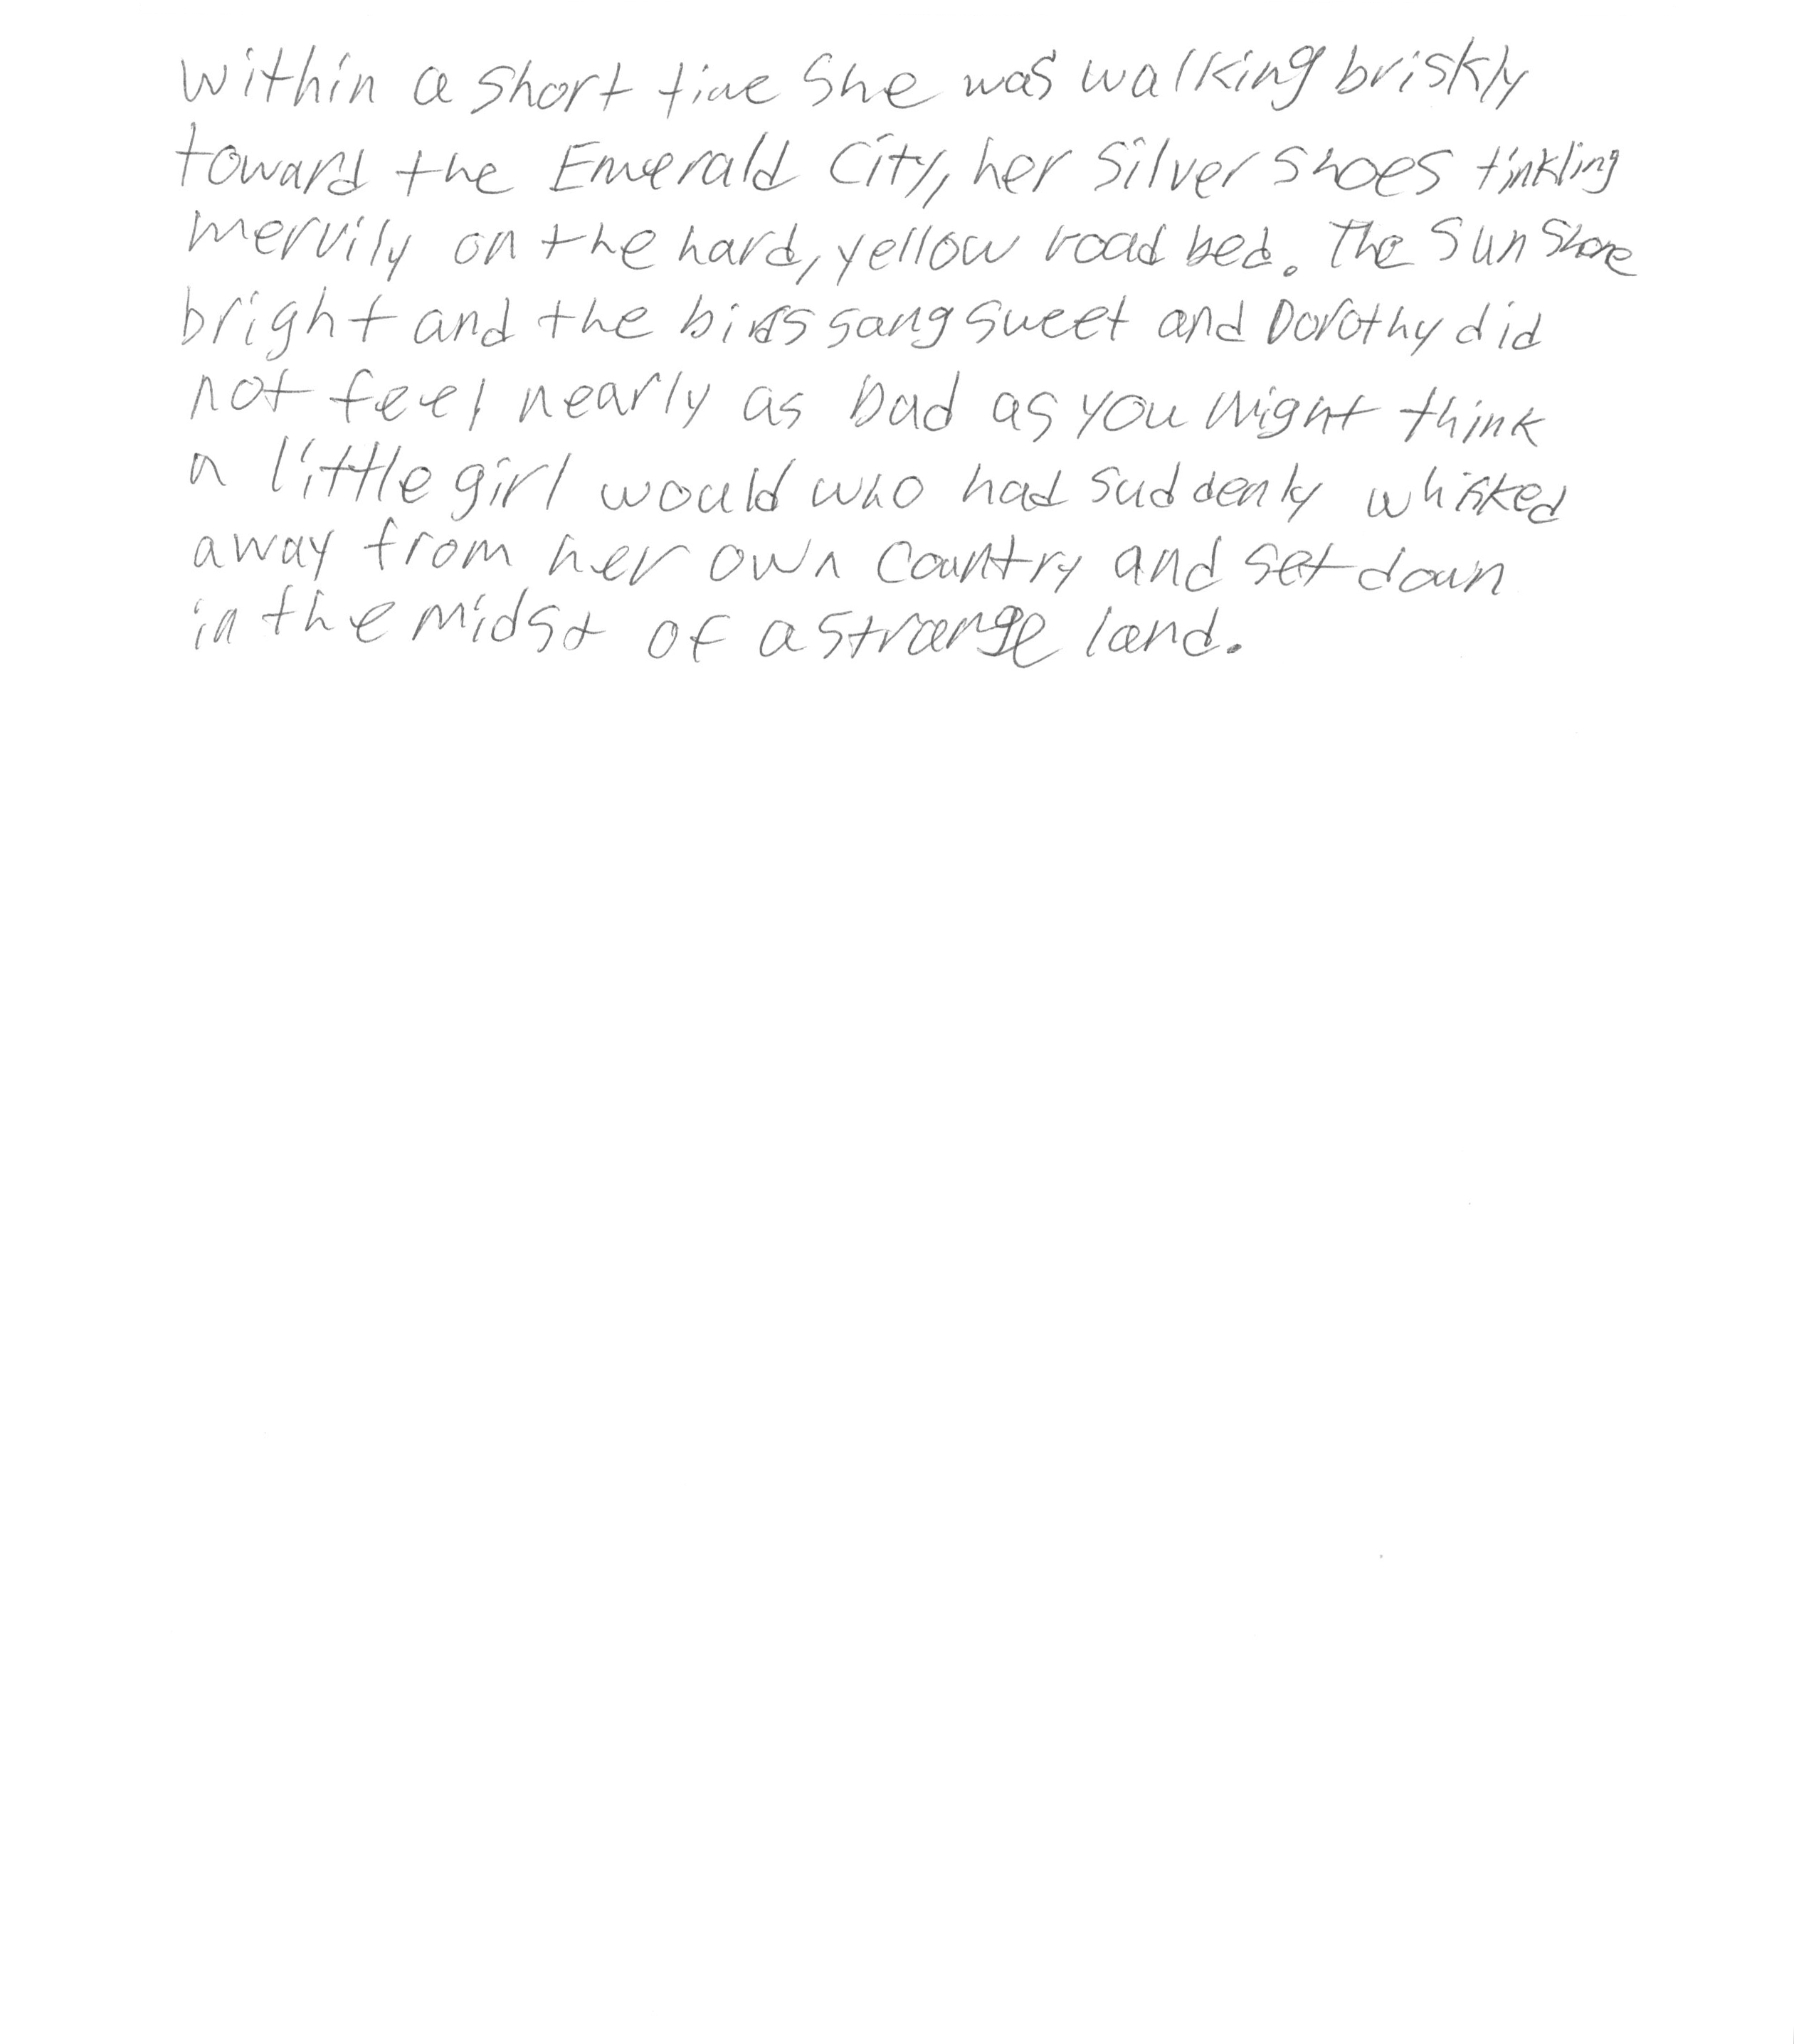 Within a short time she was walking briskly
toward the Emerald City, her silver shoes tinkling
merrily on the hard, yellow road bed. The sun shone
bright and the birds sang sweet and Dorothy did
not feel nearly as bad as you might think
a little girl would who had suddenly whisked
away from her own country and set down
in the midst of a strange land.